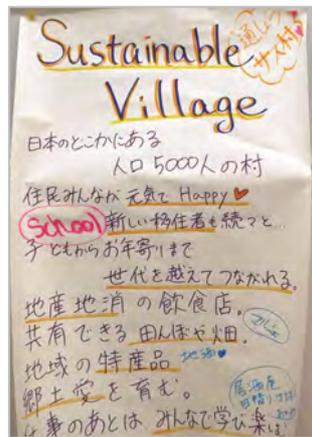 Sustainable
Village
通しょう
サス村
日本のどこかにある
人口5000人の村
住民みんなが元気で Happy♥
School 新しい移住者も続々と…
子どもからお年寄りまで
世代を越えてつながれる。
地産地消の飲食店。
共有できる田んぼや畑。
マルシェ
地域の特産品 地酒♥
郷土愛を育む。
居酒屋
仕事のあとは、みんなで学び楽しむ